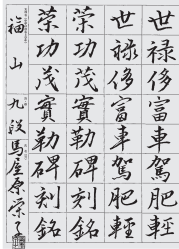 世禄侈富車駕肥輕
世禄侈富車駕肥輕
策功茂實勒碑刻銘
策功茂實勒碑刻銘
福山 九段 馬屋原栄子